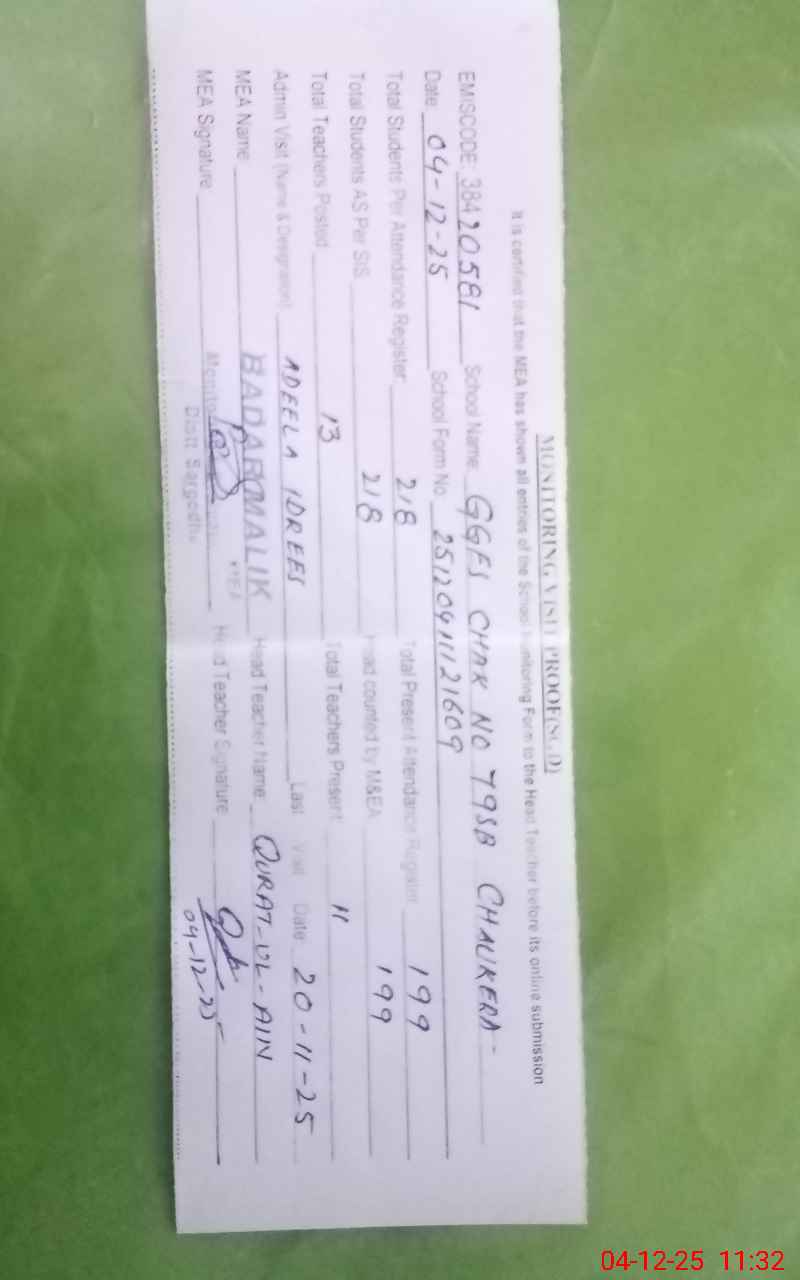 MONITORING VISIT PROOF(SED)
It is certified that the MEA has shown all entries of the School Monitoring Form to the Head Teacher before its online submission
EMISCODE: 38420581 School Name GGES CHAK NO 79SB CHAUKERA-
Date 04-12-25 School Form No. 2512041121609
Total Students Per Attendance Register 218 Total Present Attendance Register 199
Total Students AS Per SIS 218 Head counted by M&EA 199
Total Teachers Posted 13 Total Teachers Present 11
Admin Visit (Name & Designation) ADEELA IDREES Last Visit Date 20-11-25
MEA Name BADAR MALIK Head Teacher Name QURAT-UL-AIN
MEA
MEA Signature Head Teacher Signature
Distt Sargodha
04-12-25
04-12-25 11:32